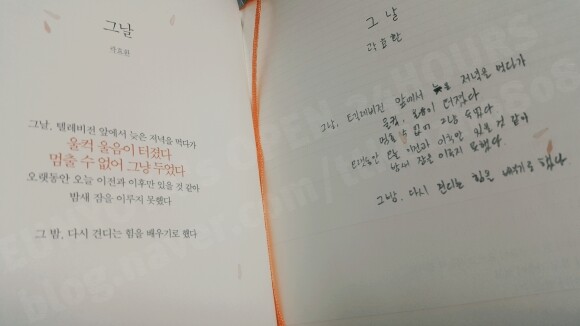 그날
곽효환
그날, 텔레비전 앞에서 늦은 저녁을 먹다가
울컥 울음이 터졌다
멈출 수 없어 그냥 두었다
오랫동안 오늘 이전과 이후만 있을 것 같아
밤새 잠을 이루지 못했다
그 밤, 다시 견디는 힘을 배우기로 했다
그 날
곽효환
그날, 텔레비전 앞에서 늦은 저녁을 먹다가
울컥, 울음이 터졌다
멈출 수 없어 그냥 두었다
오랫동안 오늘 이전과 이후만 있을 것 같아
밤새 잠을 이루지 못했다
그날, 다시 견디는 힘을 배우기로 했다